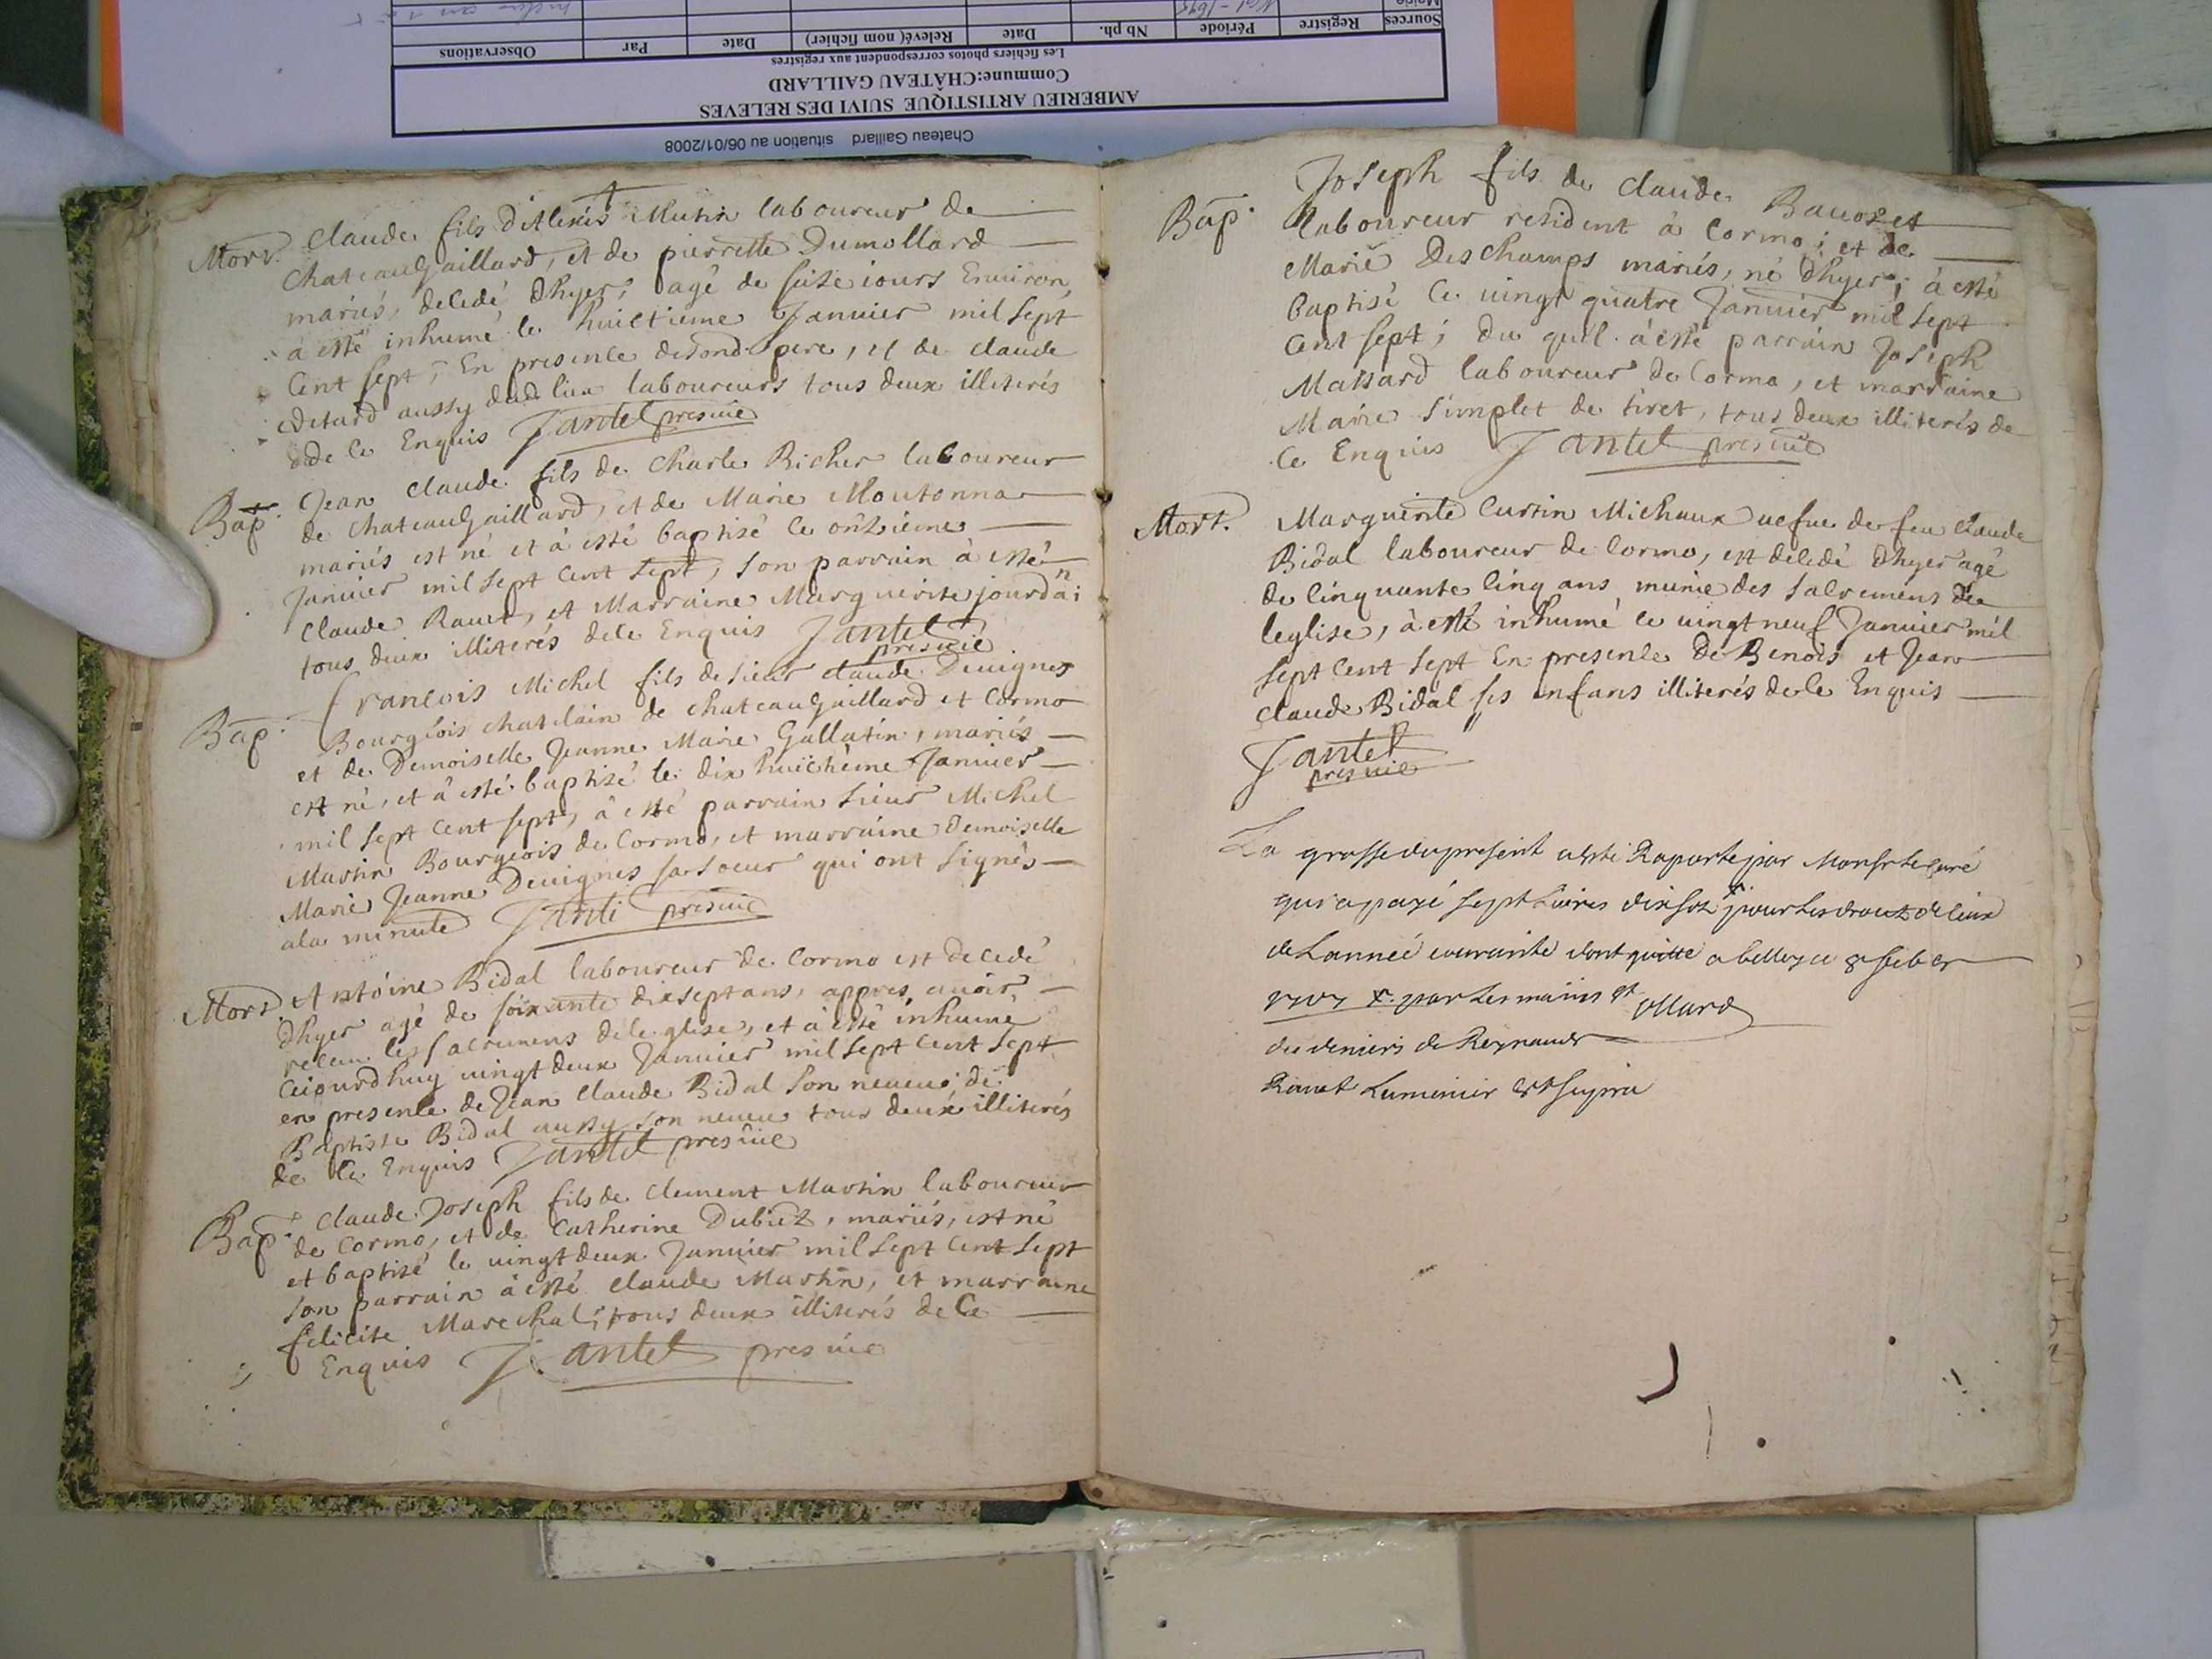 Chateau Gaillard situation au 06/01/2008
AMBERIEU ARTISTIQUE SUIVI DES RELEVES
Commune:CHÂTEAU GAILLARD
Les fichiers photos correspondent aux registres
Sources Registre Période Nb ph. Date Relevé( nom fichier) Date Par Observations
Mairie
Mort. Claude fils d'Alexis Mutin laboureur de
Chateaugaillard, et de pierrette Dumollard
mariés, decedé dhyer, agé de saise iours Environ
à esté inhumé le huictieme Janvier mil sept
Cent sept, En presence de sond pere, et de claude
aussy dud lieu laboureurs tous deux illiterés
de ce Enquis Jantel presvic
Bap. Jean claude fils de Charle Richer laboureur
de chateaugaillard, et de Marie Moutonna
mariés est né et à esté baptisé ce onzieme
Janvier mil sept cent sept, son parrain à esté
Claude Ravet, et Marraine Marguerite jourdain
tous deux illiterés de ce Enquis Jantel
presvic
Bap. francois Michel fils de sieur claude Devignes
Bourgeois chatelain de chateaugaillard et Cormo
et de Demoiselle Jeanne Marie Gallatin, mariés
est né, et à esté baptisé le dix huictieme Janvier
mil sept cent sept, à esté parrain sieur Michel
Martin Bourgeois de Cormo, et marraine Demoiselle
Marie Jeanne Devignes sa soeur qui ont signés
ala minute Jantel presvic
Mort. Antoine Bidal laboureur de Cormo est decedé
dhyer agé de soixante dix sept ans, appres avoir
receu les sacremens de leglise, et à esté inhumé
cejourdhuy vingt deux Janvier mil sept cent sept
en presence de Jean Claude Bidal son neveu; de
Baptiste Bidal aussy son neveu tous deux illiterés
de ce Enquis Jantel presvic
Bap. Claude Joseph fils de Clement Martin laboureur
de Cormo, et de Catherine Dubiez, mariés, est né
et baptisé le vingt deux Janvier mil sept cent sept
son parrain à esté Claude Martin, et marraine
felicite Marechal; tous deux illiterés de Ce
Enquis Jantel presvic
Bap. Joseph fils de claude Bavoset
laboureur resident à Cormo; et de
Marie Deschamps mariés, né dhyer; à esté
baptisé Ce vingt quatre Janvier mil sept
Cent sept; du quel à esté parrain Joseph
Massard laboureur de Cormo, et marraine
Marie Simplet de tiret, tous deux illiterés de
Ce Enquis Jantel presvic
Mort. Marguerite Curtin Michaux vefve de feu claude
Bidal laboureur de Cormo, est decedé dhyer agé
de cinquante cinq ans munie des sacremens de
leglise, à esté inhumé ce vingt neuf Janvier mil
sept cent sept En presence De Benois et Jean
claude Bidal ses enfans illiterés de ce Enquis
Jantel
presvic
La grosse du present a esté Raporté par Monsr le curé
qui a payé sept Livres dix sols pour les droits de
de Lannée courante dont quitte a belley ce 8 feber
1707 par les mains
des deniers de Reynaud
Ravet Lumenier